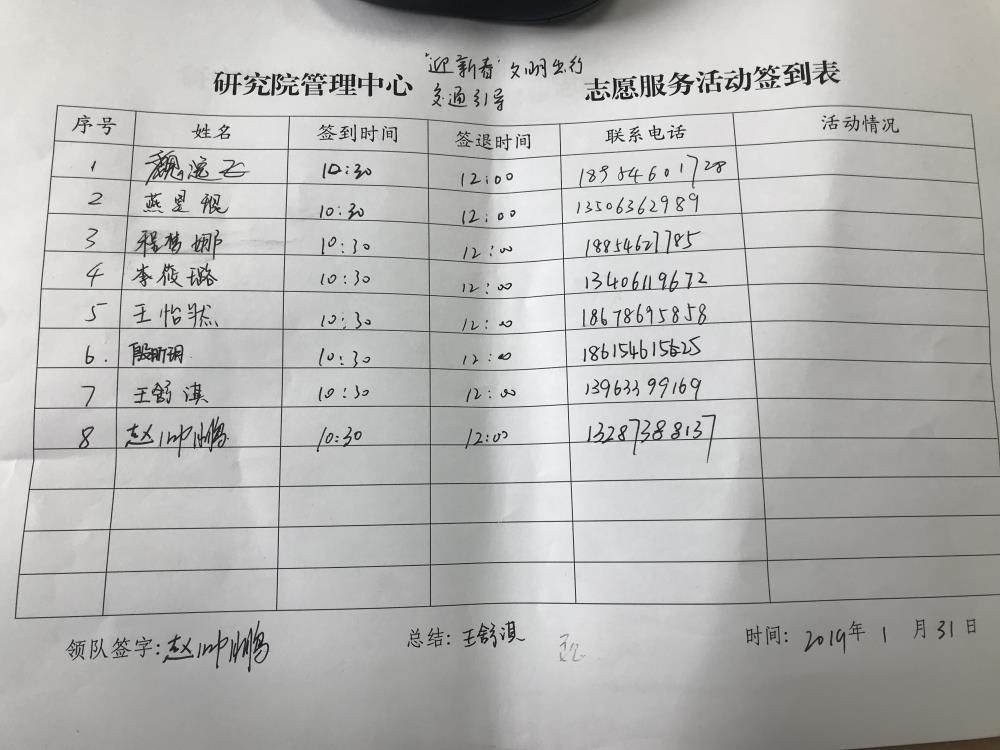 "迎新春"文明出行
研究院管理中心 交通引导 志愿服务活动签到表
序号 姓名 签到时间 签退时间 联系电话 活动情况
1 魏 10:30 12:00 18954601728
2 燕昱锟 10:30 12:00 13506362989
3 程梦娜 10:30 12:00 18854627785
4 李筱璐 10:30 12:00 13406119672
5 王怡然 10:30 12:00 18678695858
6. 殷昕玥 10:30 12:00 18615461525
7 王舒淇 10:30 12:00 13963399169
8 赵帅鹏 10:30 12:00 13287388137
领队签字:赵帅鹏 总结:王舒淇 时间:2019年1月31日